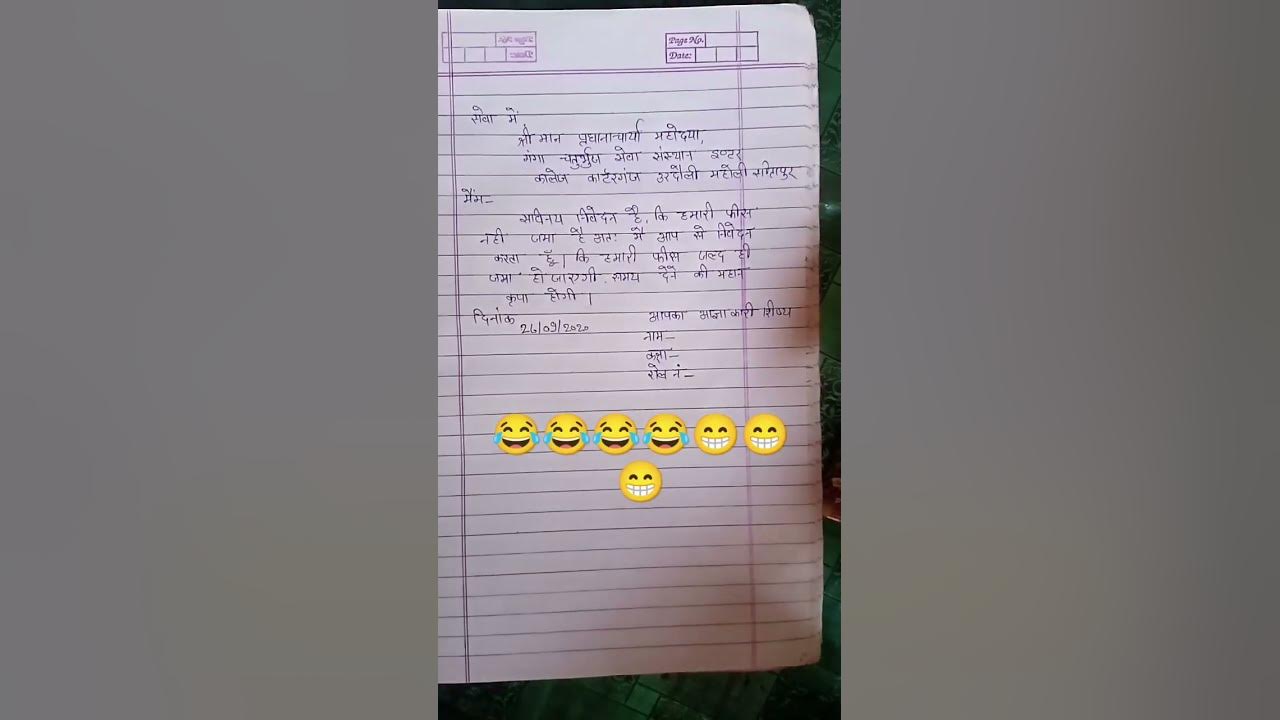 Page No.
Date:
सेवा में
श्री मान प्रधानाचार्या महोदया,
गंगा चतुर्भुज सेवा संस्थान इण्टर
कालेज कार्टरगंज उरदौली महोली सीतापुर
मैंम-
सविनय निवेदन है, कि हमारी फीस
नही जमा है अतः मै आप से निवेदन
करता हूँ। कि हमारी फीस जल्द ही
जमा हो जाएगी. समय देने की महान
कृपा होगी।
दिनांक 26/09/2020
आपका आज्ञाकारी शिष्य
नाम-
कक्षा-
रोल नं-
😂😂😂😂😁😁
😁